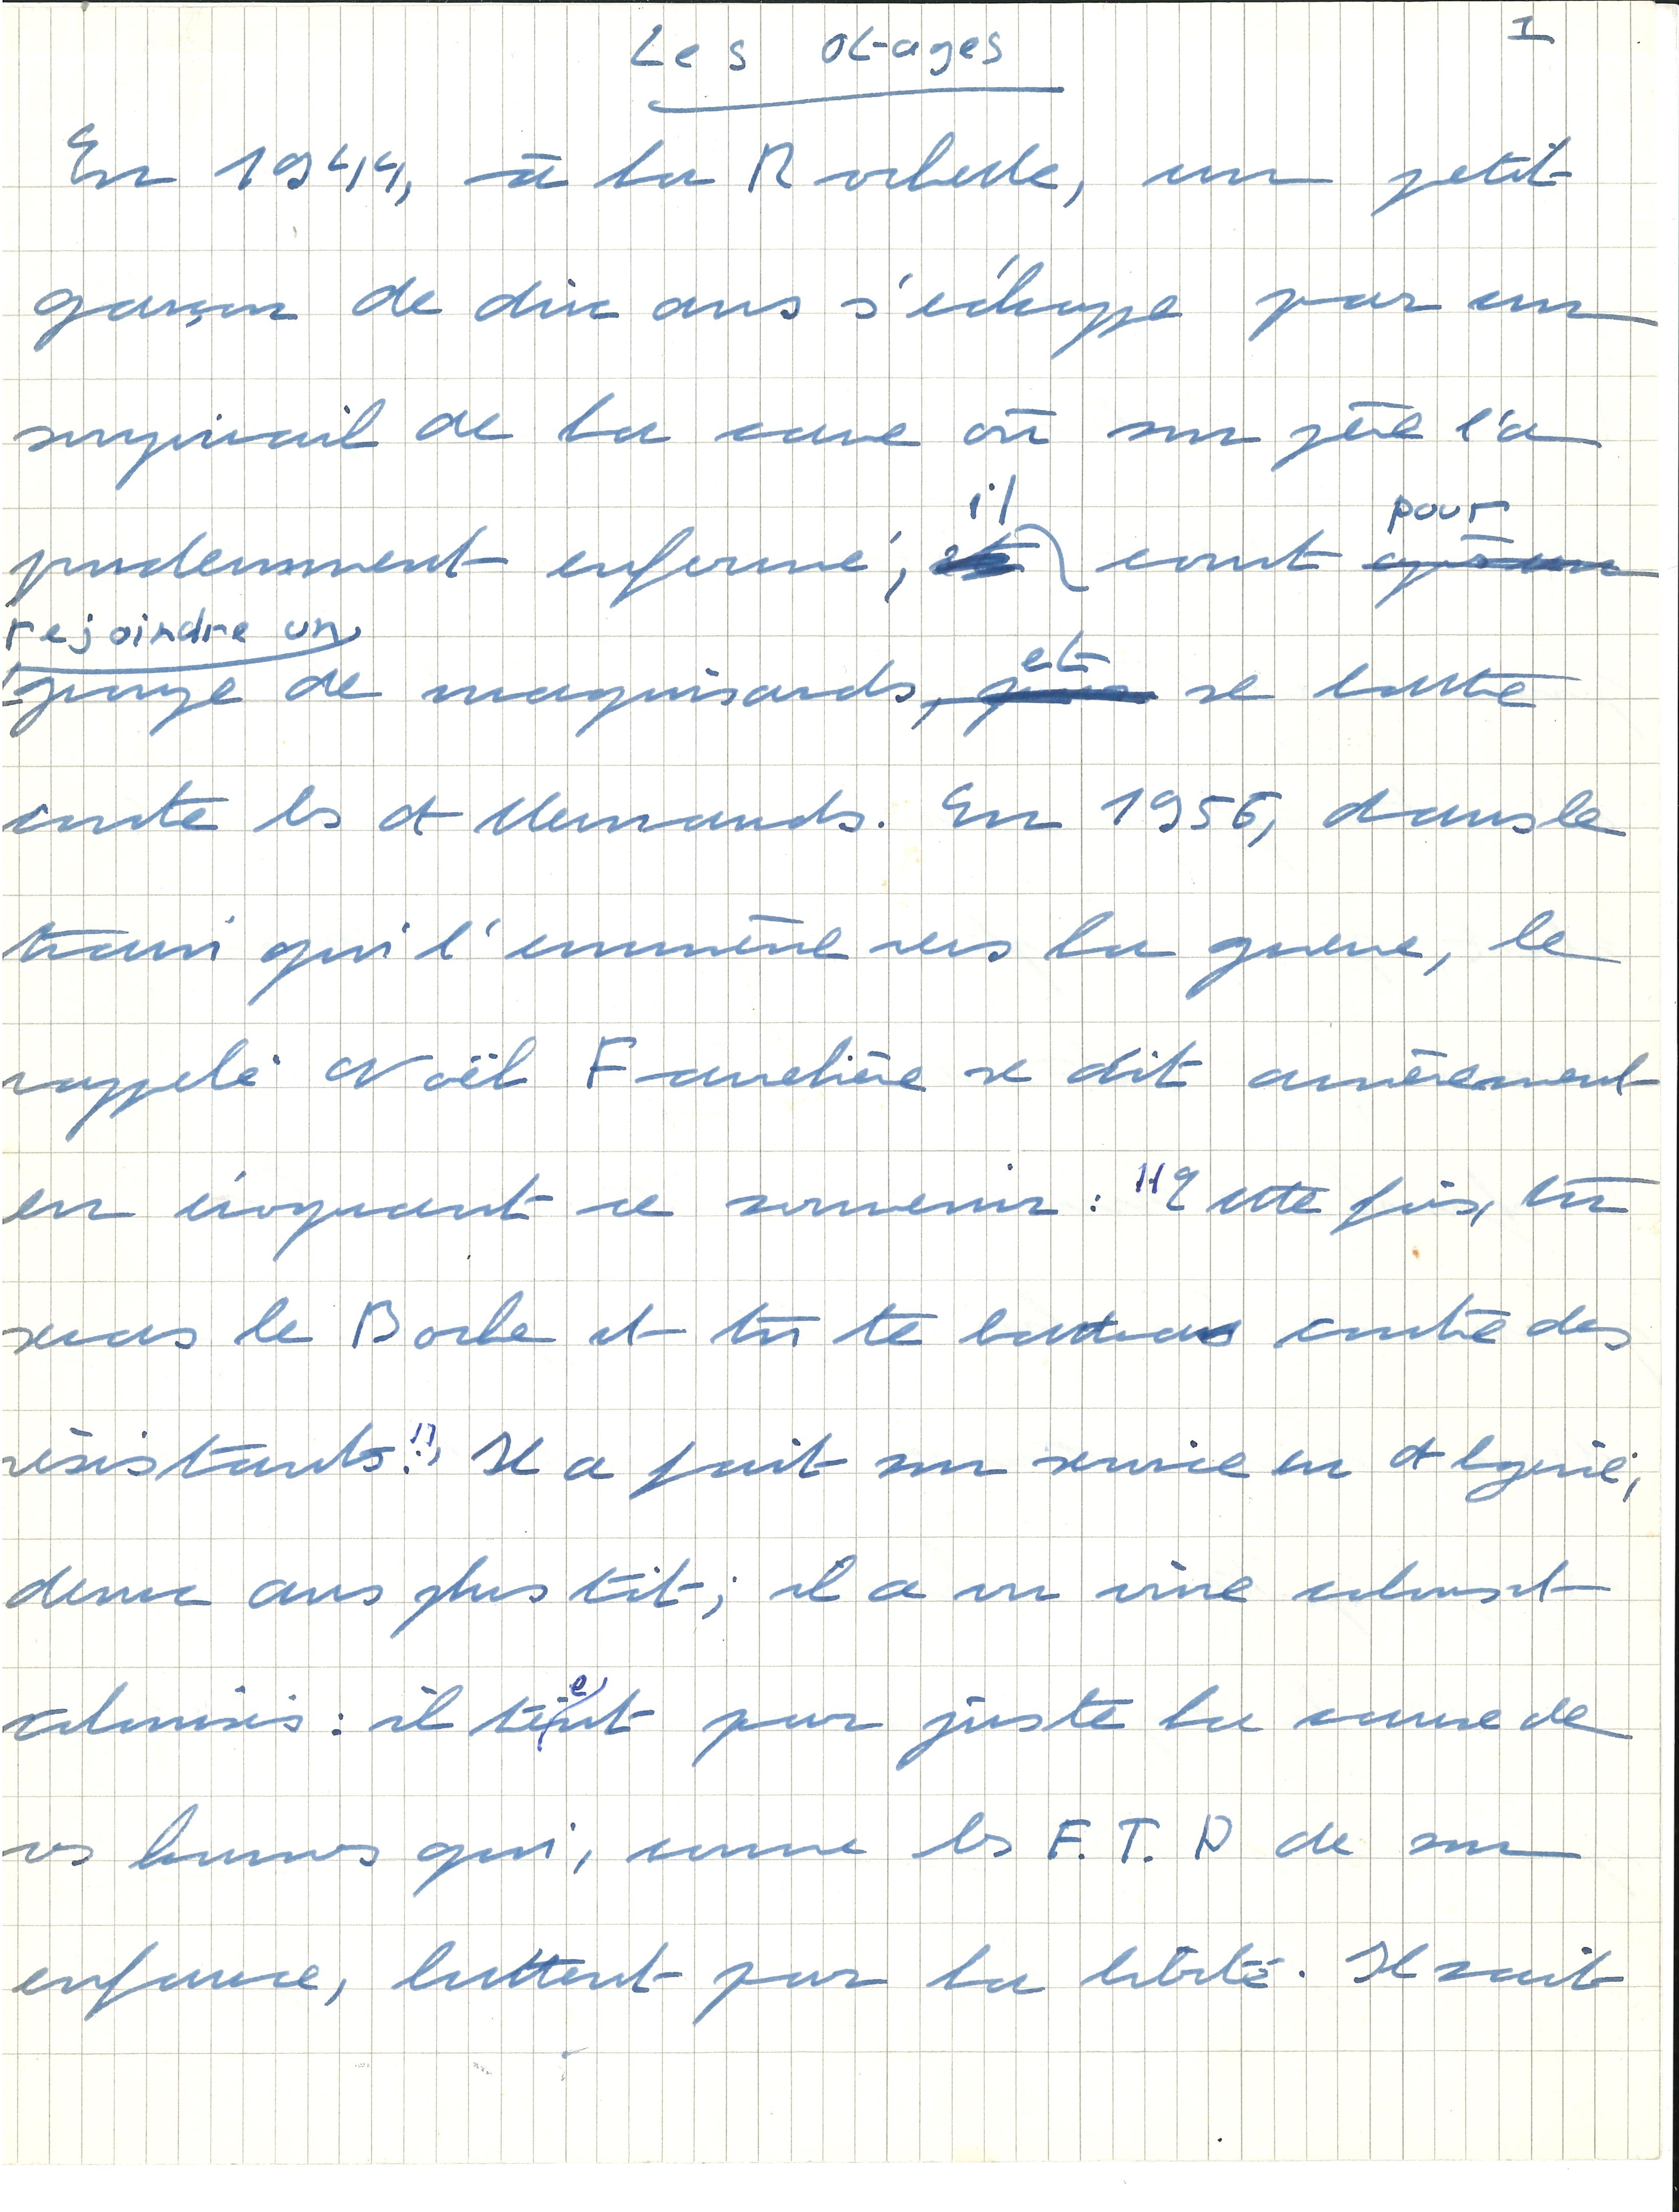 Les otages
1
En 1944, à la Rochelle, un petit
garçon de dix ans s'échappe par un
soupirail de la cave où son père l'a
prudemment enfermé, il court pour
rejoindre un
groupe de maquisards, et se battre
contre les Allemands. En 1956, dans le
train qui l'emmène vers la guerre, le
rappelé Noël Favrelière se dit amèrement
en évoquant ce souvenir : "Cette fois, tu
seras le Boche et tu te battras contre des
résistants." Il a fait son service en Algérie,
deux ans plus tôt ; il a vu vivre colons et
colonisés : il tient pour juste la cause de
ces hommes qui, comme les F.T.P de son
enfance, luttent pour la liberté. Il sait